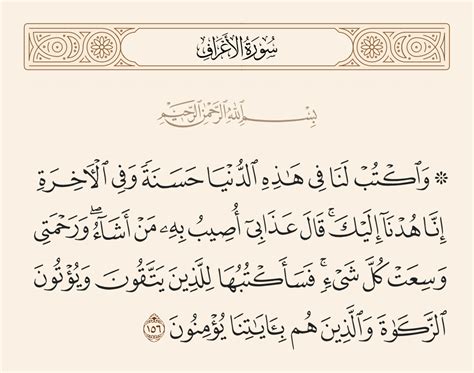 سُورَةُ الأَعۡرَافِ
بِسۡمِ ٱللَّهِ ٱلرَّحۡمَٰنِ ٱلرَّحِيمِ
۞ وَٱكۡتُبۡ لَنَا فِي هَٰذِهِ ٱلدُّنۡيَا حَسَنَةٗ وَفِي ٱلۡأٓخِرَةِ
إِنَّا هُدۡنَآ إِلَيۡكَۚ قَالَ عَذَابِيٓ أُصِيبُ بِهِۦ مَنۡ أَشَآءُۖ وَرَحۡمَتِي
وَسِعَتۡ كُلَّ شَيۡءٖۚ فَسَأَكۡتُبُهَا لِلَّذِينَ يَتَّقُونَ وَيُؤۡتُونَ
ٱلزَّكَوٰةَ وَٱلَّذِينَ هُم بِـَٔايَٰتِنَا يُؤۡمِنُونَ ١٥٦